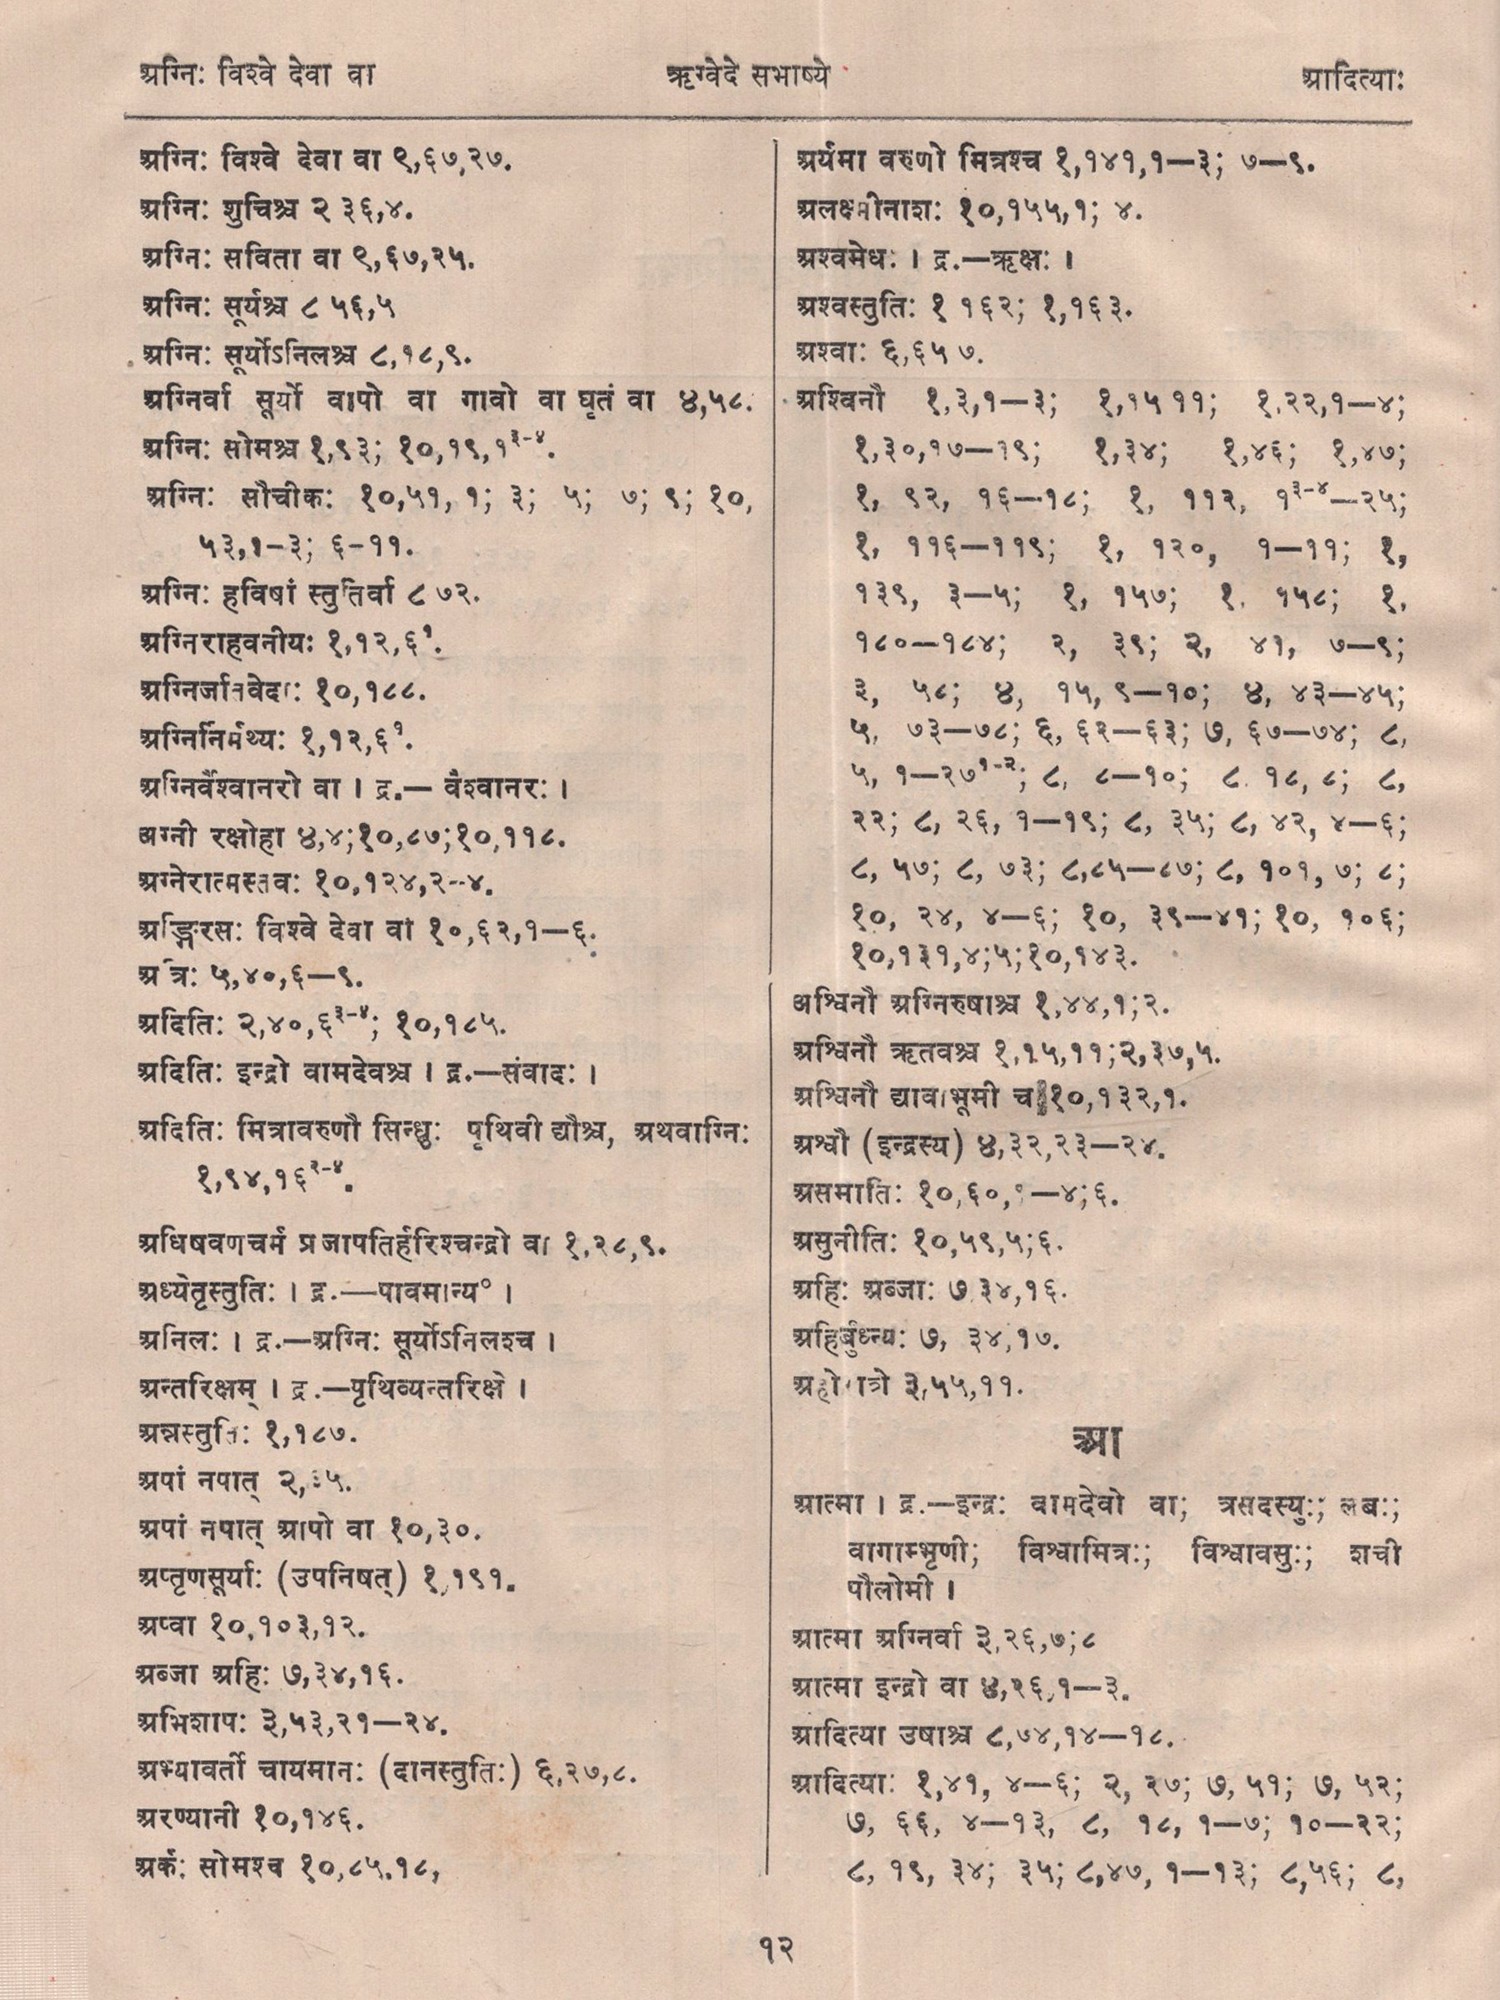 अग्निः विश्वे देवा वा
ऋग्वेदे सभाष्ये
आदित्याः
अग्निः विश्वे देवा वा ९,६७,२७.
अग्निः शुचिश्च २ ३६,४.
अग्निः सविता वा ९,६७,२५.
अग्निः सूर्यश्च ८ ५६,५
अग्निः सूर्योऽनिलश्च ८,१८,९.
अग्निर्वा सूर्यो वापो वा गावो वा घृतं वा ४,५८.
अग्निः सोमश्च १,९३; १०,१९,१³⁻⁴.
अग्निः सौचीकः १०,५१, १; ३; ५; ७; ९; १०,
५३,१-३; ६-११.
अग्निः हविषां स्तुतिर्वा ८ ७२.
अग्निराहवनीयः १,१२,६¹.
अग्निर्जातवेदाः १०,१८८.
अग्निर्निर्मथ्यः १,१२,६¹.
अग्निर्वैश्वानरो वा । द्र.— वैश्वानरः ।
अग्नी रक्षोहा ४,४;१०,८७;१०,११८.
अग्नेरात्मस्तवः १०,१२४,२--४.
अङ्गिरसः विश्वे देवा वा १०,६२,१—६.
अत्रिः ५,४०,६—९.
अदितिः २,४०,६³⁻⁴; १०,१८५.
अदितिः इन्द्रो वामदेवश्च । द्र.—संवादः ।
अदितिः मित्रावरुणौ सिन्धुः पृथिवी द्यौश्च, अथवाग्निः
१,९४,१६³⁻⁴.
अधिषवणचर्म प्रजापतिर्हरिश्चन्द्रो वा १,२८,९.
अध्येतृस्तुतिः । द्र.—पावमान्य° ।
अनिलः । द्र.—अग्निः सूर्योऽनिलश्च ।
अन्तरिक्षम् । द्र.—पृथिव्यन्तरिक्षे ।
अन्नस्तुतिः १,१८७.
अपां नपात् २,३५.
अपां नपात् आपो वा १०,३०.
अप्तृणसूर्याः (उपनिषत्) १,१९१.
अप्वा १०,१०३,१२.
अब्जा अहिः ७,३४,१६.
अभिशापः ३,५३,२१—२४.
अभ्यावर्ती चायमानः (दानस्तुतिः) ६,२७,८.
अरण्यानी १०,१४६.
अर्कः सोमश्च १०,८५,१८,
अर्यमा वरुणो मित्रश्च १,१४१,१—३; ७—९.
अलक्ष्मीनाशः १०,१५५,१; ४.
अश्वमेधः । द्र.—ऋक्षः ।
अश्वस्तुतिः १ १६२; १,१६३.
अश्वाः ६,६५ ७.
अश्विनौ १,३,१—३; १,१५ ११; १,२२,१—४;
१,३०,१७—१९; १,३४; १,४६; १,४७;
१, ९२, १६—१८; १, ११२, १³⁻⁴—२५;
१, ११६—११९; १, १२०, १—११; १,
१३९, ३—५; १, १५७; १, १५८; १,
१८०—१८४; २, ३९; २, ४१, ७—९;
३, ५८; ४, १५, ९—१०; ४, ४३—४५;
५, ७३—७८; ६, ६२—६३; ७, ६७—७४; ८,
५, १—२७¹⁻²; ८, ८—१०; ८ १८, ८; ८,
२२; ८, २६, १—१९; ८, ३५; ८, ४२, ४—६;
८, ५७; ८, ७३; ८,८५—८७; ८, १०१, ७; ८;
१०, २४, ४—६; १०, ३९—४१; १०, १०६;
१०,१३१,४;५;१०,१४३.
अश्विनौ अग्निरुषाश्च १,४४,१;२.
अश्विनौ ऋतवश्च १,१५,११;२,३७,५.
अश्विनौ द्यावाभूमी च १०,१३२,१.
अश्वौ (इन्द्रस्य) ४,३२,२३—२४.
असमातिः १०,६०,१—४;६.
असुनीतिः १०,५९,५;६.
अहिः अब्जाः ७ ३४,१६.
अहिर्बुध्न्यः ७, ३४,१७.
अहोरात्रो ३,५५,११.
आ
आत्मा । द्र.—इन्द्रः वामदेवो वा; त्रसदस्युः; लबः;
वागाम्भृणी; विश्वामित्रः; विश्वावसुः; शची
पौलोमी ।
आत्मा अग्निर्वा ३,२६,७;८
आत्मा इन्द्रो वा ४,२६,१—३.
आदित्या उषाश्च ८,७४,१४—१८.
आदित्याः १,४१, ४—६; २, २७; ७, ५१; ७, ५२;
७, ६६, ४—१३, ८, १८, १—७; १०—२२;
८, १९, ३४; ३५; ८,४७, १—१३; ८,५६; ८,
१२